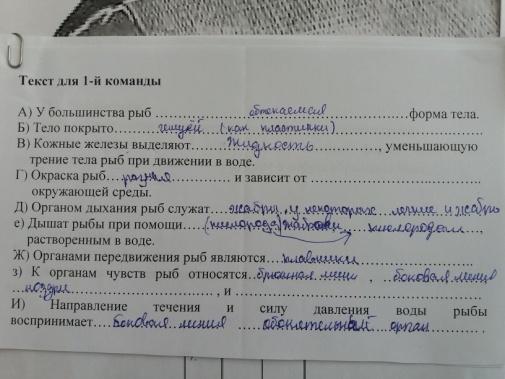 Текст для 1-й команды
А) У большинства рыб ......обтекаемая......форма тела.
Б) Тело покрыто......чешуёй (как пластинки)......
В) Кожные железы выделяют......жидкость......, уменьшающую
трение тела рыб при движении в воде.
Г) Окраска рыб....разная...... и зависит от ......
окружающей среды.
Д) Органом дыхания рыб служат....жабры, у некоторых легкие и жабры
е) Дышат рыбы при помощи....(кислорода) жабрами, кислородом....,
растворенным в воде.
Ж) Органами передвижения рыб являются....плавники......
з) К органам чувств рыб относятся.. линия , боковая линия
ноздри......, и ......
И) Направление течения и силу давления воды рыбы
воспринимает....боковая линия обонятельный орган......